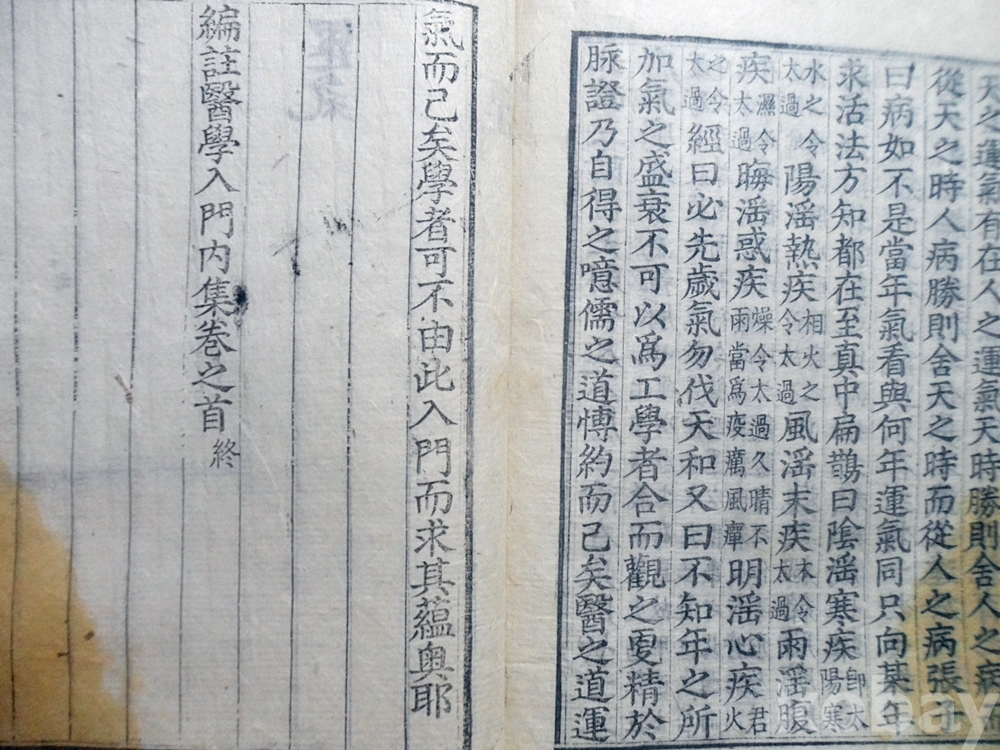 天之運氣有在人之運氣天時勝則舍人之病
從天之時人病勝則舍天之時而從人之病張子
曰病如不是當年氣看與何年運氣同只向某年
求活法方知都在至真中扁鵲曰陰淫寒疾即太陽寒
水之令太過陽淫熱疾相火之令太過風淫末疾木令太過雨淫腹
疾濕令太過晦淫惑疾燥令太過久晴不雨當爲疫癘風癉明淫心疾君火
之令太過經曰必先歲氣勿伐天和又曰不知年之所
加氣之盛衰不可以爲工學者合而觀之更精於
脉證乃自得之噫儒之道博約而已矣醫之道運
氣而已矣學者可不由此入門而求其蘊奧耶
編註醫學入門內集卷之首終